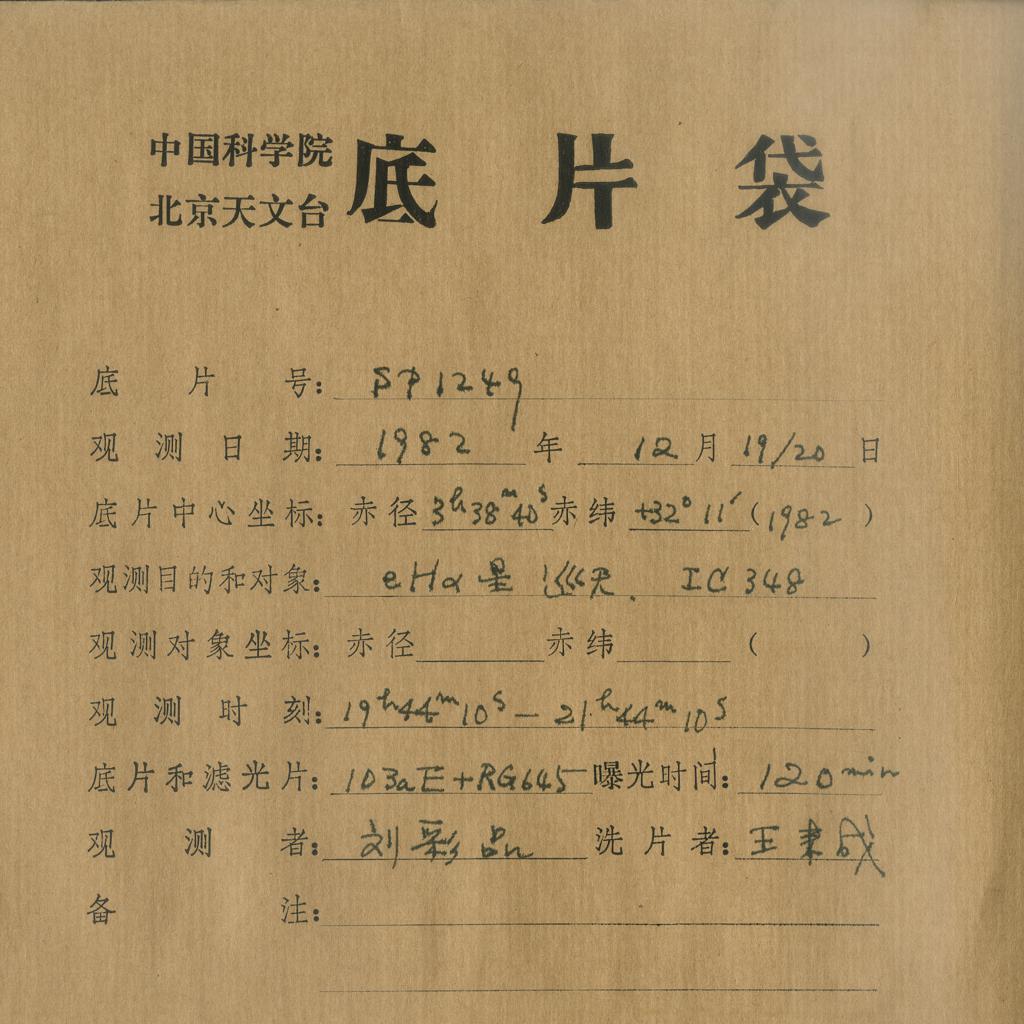 中国科学院
北京天文台
底片袋
底片号: SP1249
观测日期: 1982年12月19/20日
底片中心坐标: 赤径 3h38m40s 赤纬 +32°11′(1982)
观测目的和对象: eHα星巡天. IC 348
观测对象坐标: 赤径 赤纬 ( )
观测时刻: 19h44m10s — 21h44m10s
底片和滤光片: 103aE+RG645 曝光时间: 120min
观测者: 刘彩品 洗片者: 王
备注: